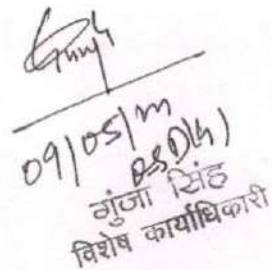 09/05/
OSD(h)
गुंजा सिंह
विशेष कार्याधिकारी